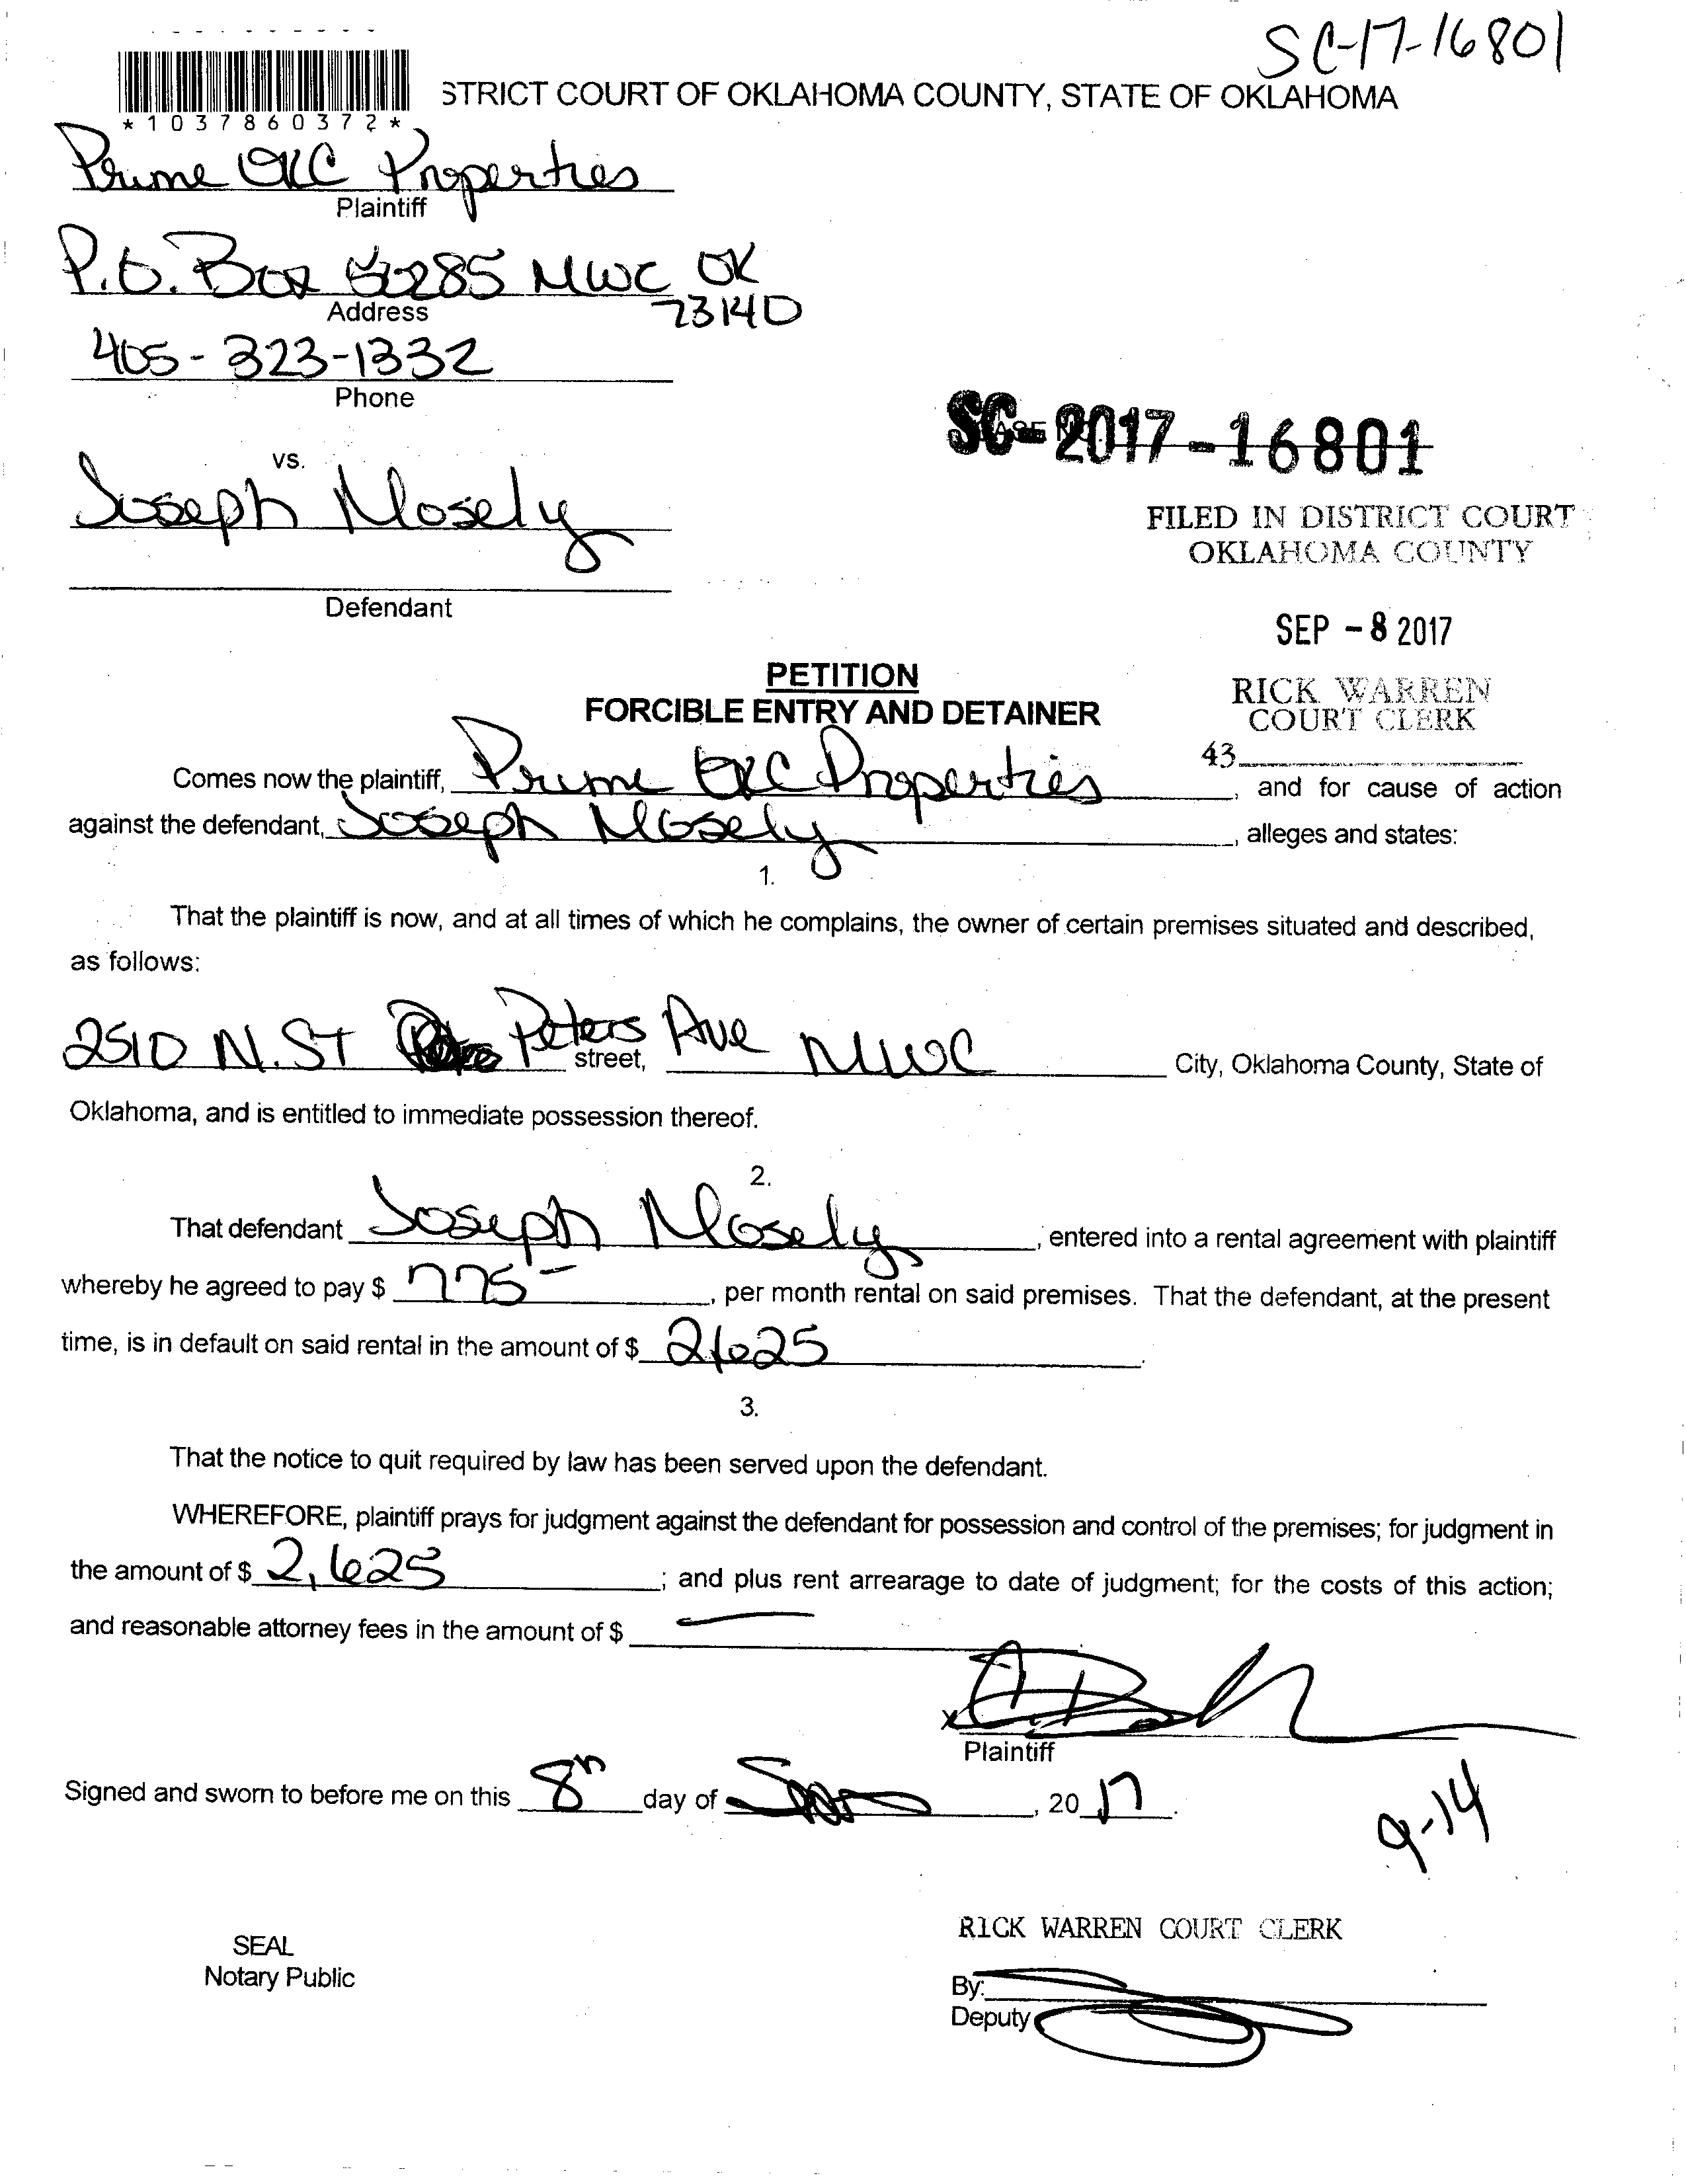 SC-17-16801
*1037860372*
STRICT COURT OF OKLAHOMA COUNTY, STATE OF OKLAHOMA
Prime OKC Properties
Plaintiff
P.O. Box 30285 MWC OK
73140
Address
405-323-1332
Phone
SC-2017-16801
vs.
Joseph Mosely
FILED IN DISTRICT COURT
OKLAHOMA COUNTY
Defendant
SEP - 8 2017
PETITION
FORCIBLE ENTRY AND DETAINER
RICK WARREN
COURT CLERK
43
Comes now the plaintiff, Prime OKC Properties, and for cause of action
against the defendant, Joseph Mosely, alleges and states:
1.
That the plaintiff is now, and at all times of which he complains, the owner of certain premises situated and described,
as follows:
2510 N. ST Peters Ave street, MWC City, Oklahoma County, State of
Oklahoma, and is entitled to immediate possession thereof.
2.
That defendant Joseph Mosely, entered into a rental agreement with plaintiff
whereby he agreed to pay $ 775-, per month rental on said premises. That the defendant, at the present
time, is in default on said rental in the amount of $ 2625.
3.
That the notice to quit required by law has been served upon the defendant.
WHEREFORE, plaintiff prays for judgment against the defendant for possession and control of the premises; for judgment in
the amount of $ 2,625; and plus rent arrearage to date of judgment; for the costs of this action;
and reasonable attorney fees in the amount of $ —
x
Plaintiff
Signed and sworn to before me on this 8th day of , 2017.
9-14
RICK WARREN COURT CLERK
SEAL
Notary Public
By:
Deputy